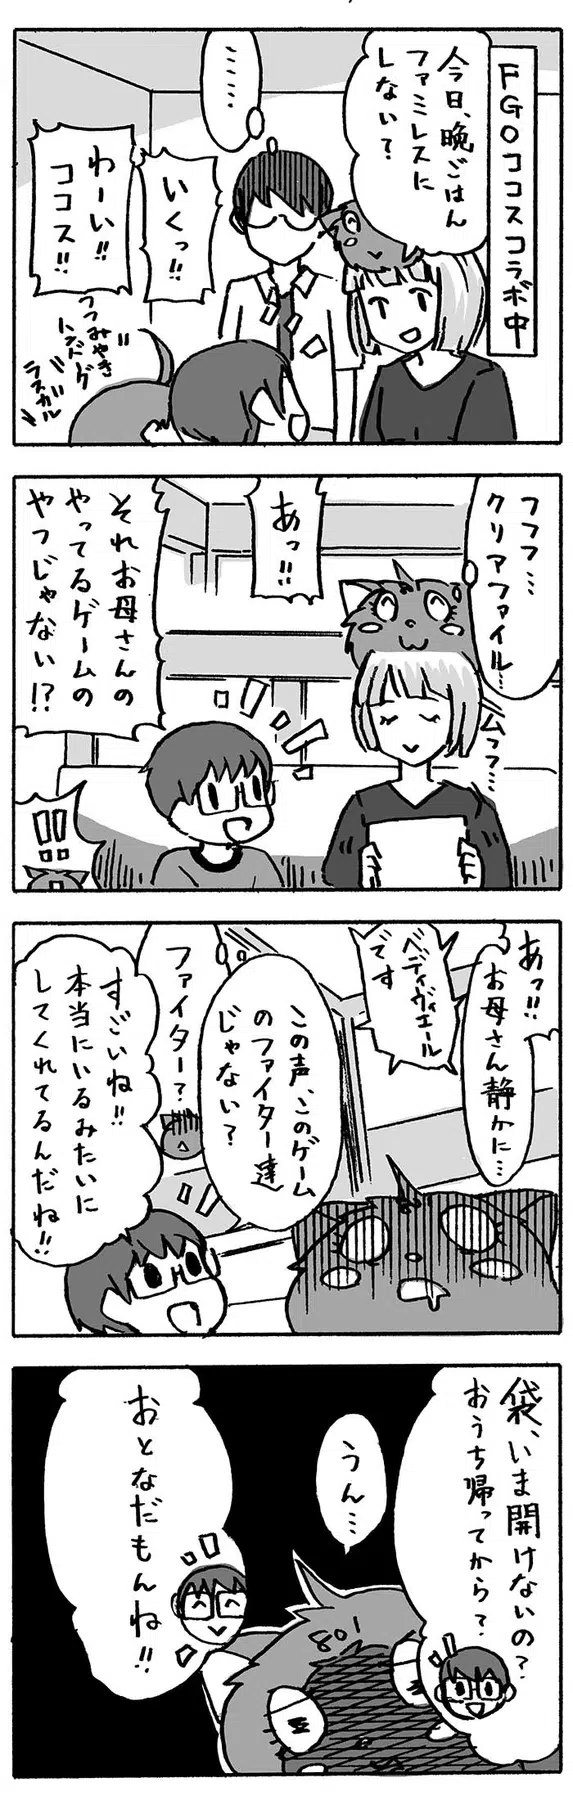 FGOココスコラボ中
今日、晩ごはん
ファミレスに
しない?
……
いくっ!!
わーい!!
ココス!!
つつみやき
ハンバーグ
ラスカル
フフフ…
クリアファイル…
ムフフ…
あっ!!
それお母さんの
やってるゲームの
やつじゃない!?
!!
あっ!!
お母さん静かに…
ベディヴィエール
です
この声、このゲーム
のファイター達
じゃない?
ファイター?
すごいね!!
本当にいるみたいに
してくれてるんだね!!
袋、いま開けないの?
おうち帰ってから?
うん…
おとなだもんね!!
801